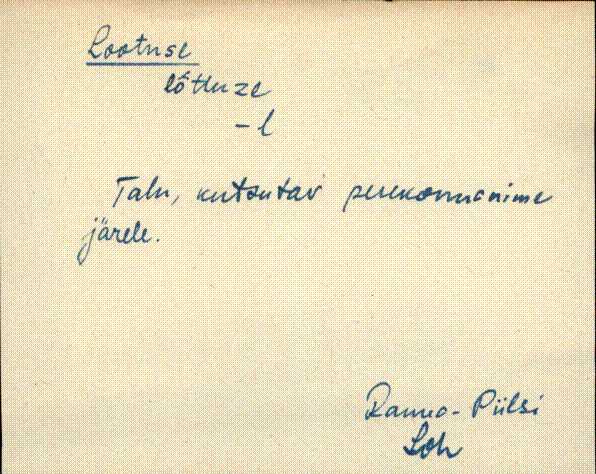 Lootuse
lõ̀ttuze
-l
Talu, kutsutav perekonnanime
järele.
Rannu - Piilsi
Loh